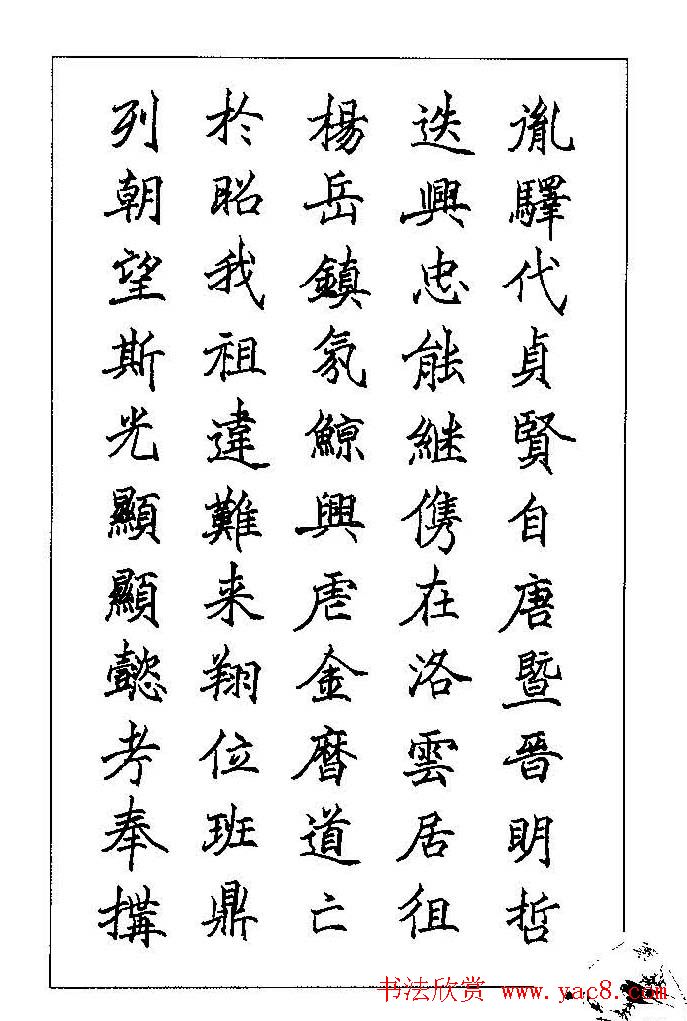 胤驛代貞賢自唐暨晉明哲
迭興忠能継儁在洛雲居徂
楊岳鎮氛鯨興虐金曆道亡
於昭我祖違難来翔位班鼎
列朝望斯光顯顯懿考奉搆
书法欣赏 www.yac8.com